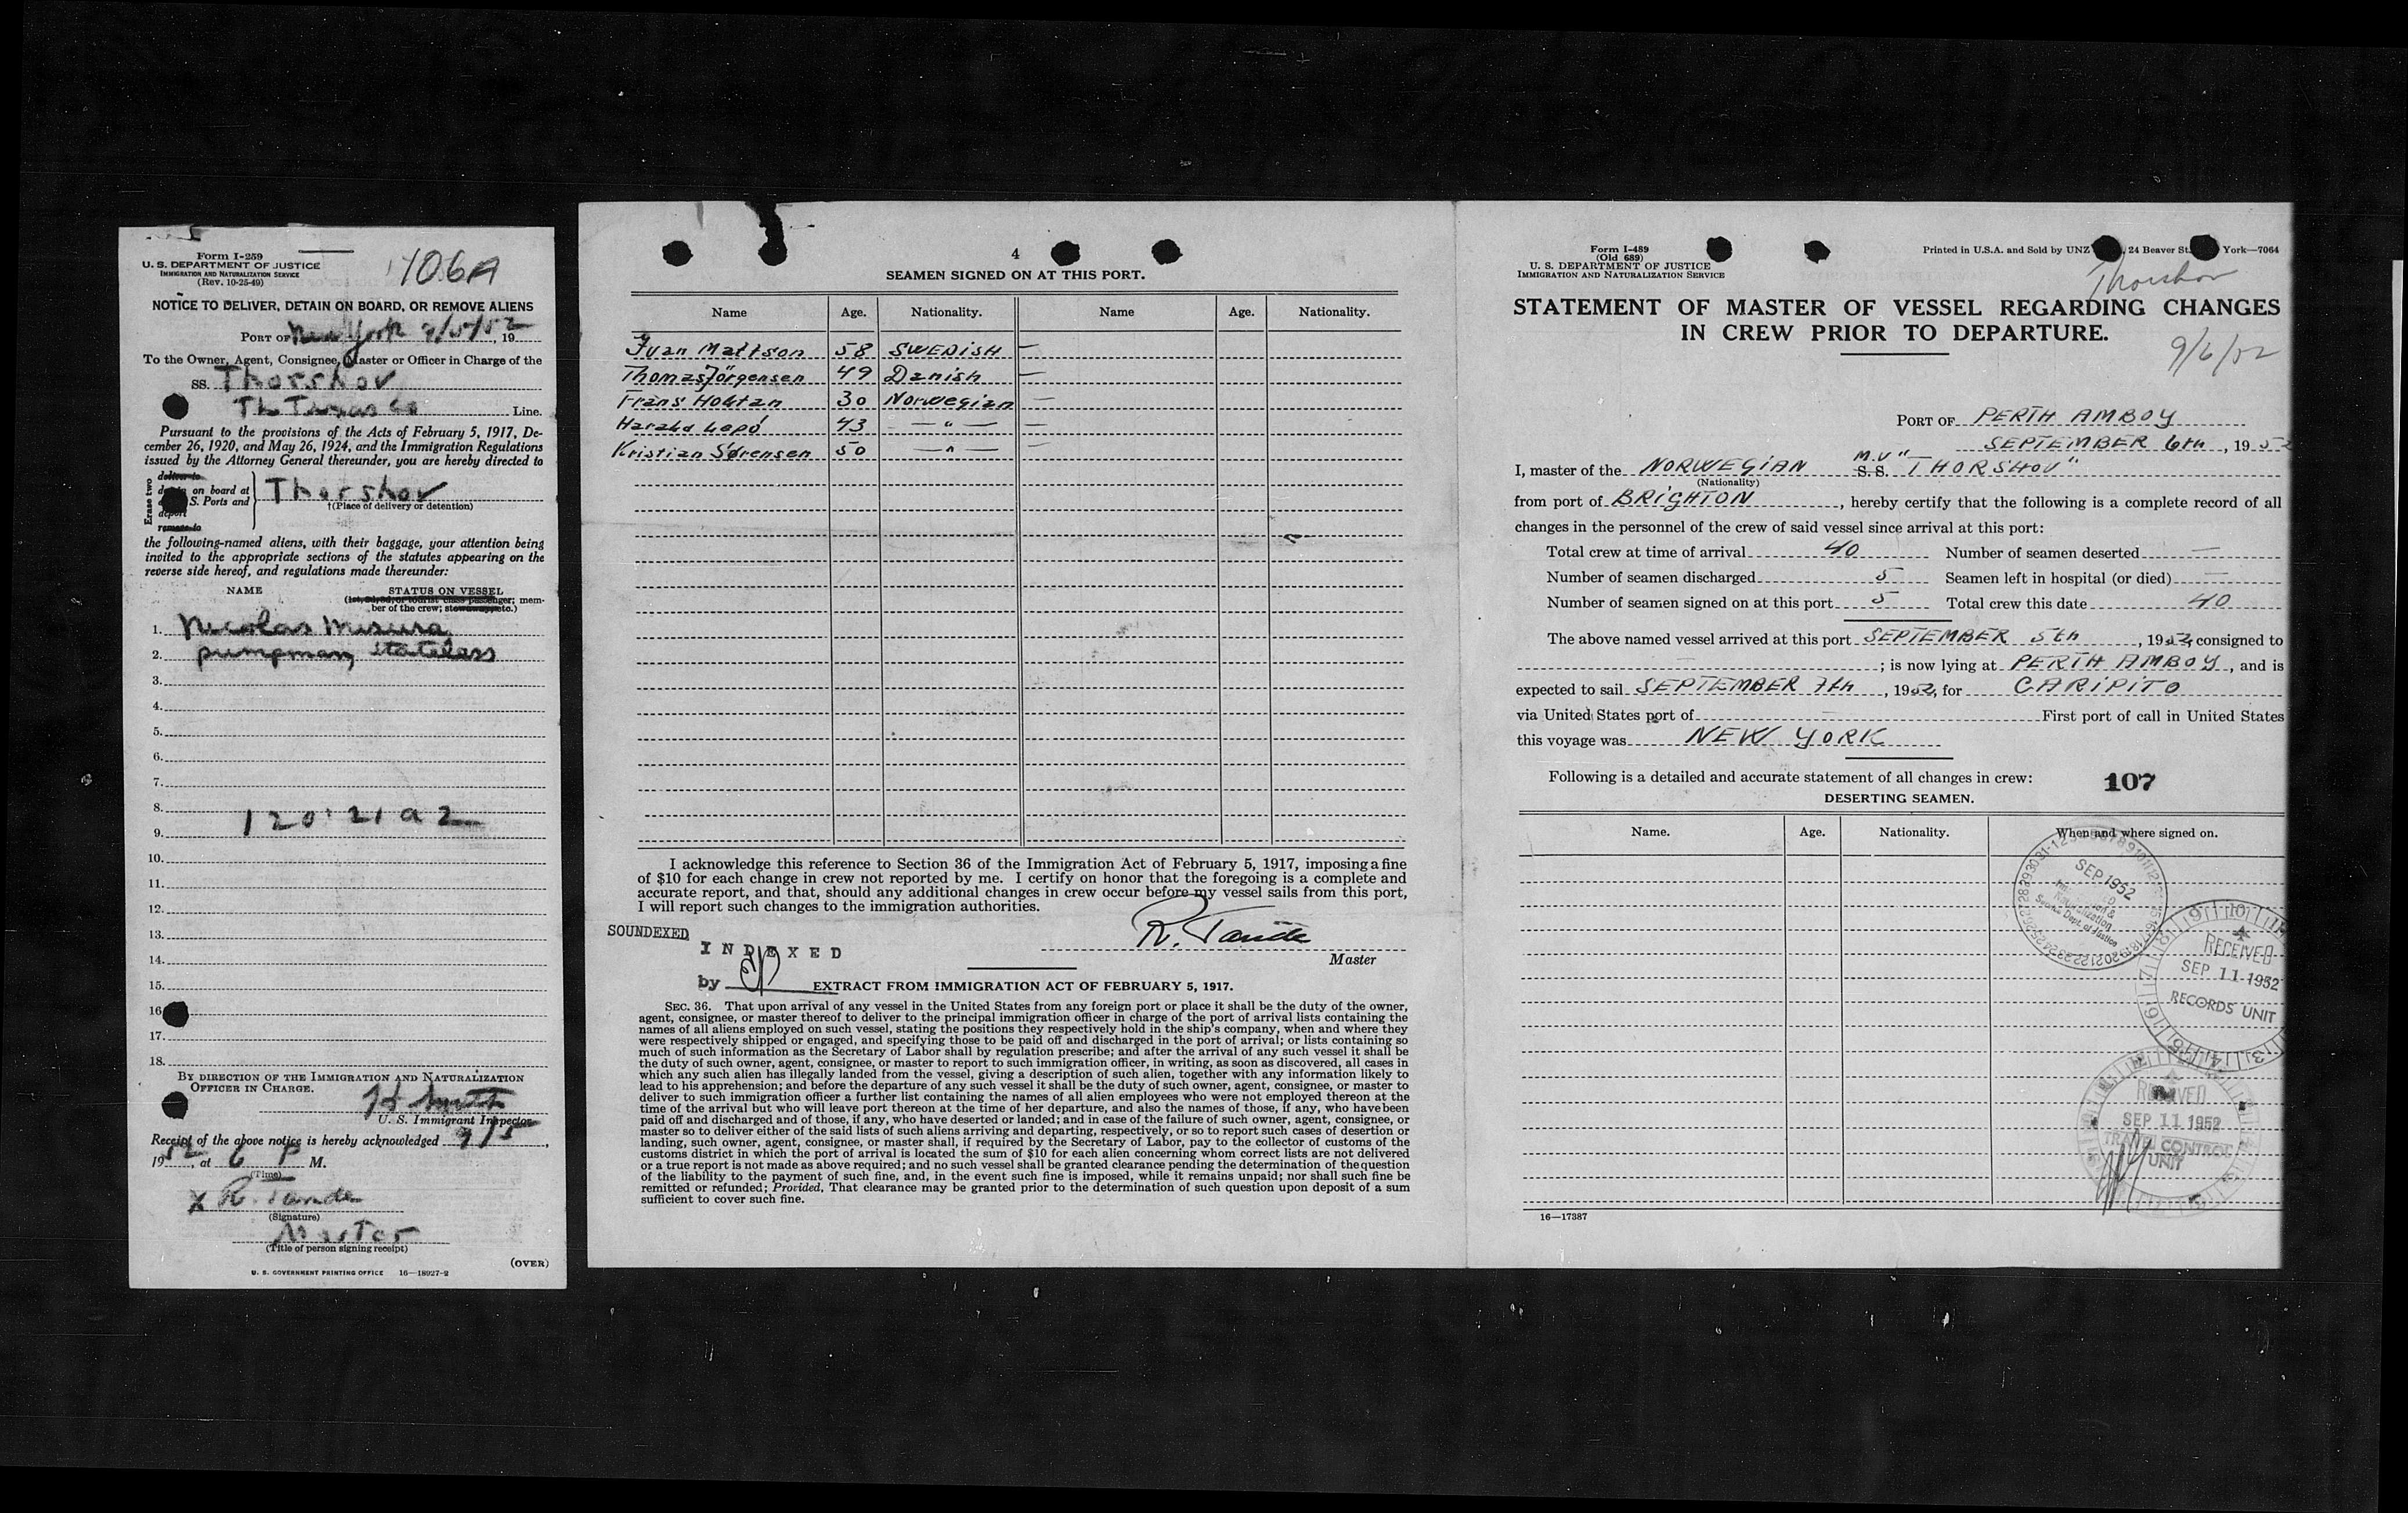 Form I-259
U. S. DEPARTMENT OF JUSTICE
IMMIGRATION AND NATURALIZATION SERVICE
(Rev. 10-25-49)
106A
NOTICE TO DELIVER, DETAIN ON BOARD, OR REMOVE ALIENS
PORT OF New York 9/5/52, 19
To the Owner, Agent, Consignee, Master or Officer in Charge of the
SS. Thorshov
Line.
Pursuant to the provisions of the Acts of February 5, 1917, De-
cember 26, 1920, and May 26, 1924, and the Immigration Regulations
issued by the Attorney General thereunder, you are hereby directed to
Erase two
deliver to
on board at
S. Ports and
deport
remove to
Thorshov
†(Place of delivery or detention)
the following-named aliens, with their baggage, your attention being
invited to the appropriate sections of the statutes appearing on the
reverse side hereof, and regulations made thereunder:
NAME STATUS ON VESSEL
(1st, 2d, 3d, or tourist class passenger; mem-
ber of the crew; stowaway, etc.)
1. Nicolas Misura
2. pumpman, stateless
3.
4.
5.
6.
7.
8.
120: 21 a 2
9.
10.
11.
12.
13.
14.
15.
16
17.
18.
BY DIRECTION OF THE IMMIGRATION AND NATURALIZATION
OFFICER IN CHARGE.
U. S. Immigrant Inspector
Receipt of the above notice is hereby acknowledged 9/5,
1952, at 6 P M.
(Time)
x R. Tande
(Signature)
Master
(Title of person signing receipt)
(OVER)
U. S. GOVERNMENT PRINTING OFFICE 16—18927-2
4
SEAMEN SIGNED ON AT THIS PORT.
Name Age. Nationality. Name Age. Nationality.
Ivan Mattson 58 SWEDISH —
Thomas Jörgensen 49 Danish —
Frans Holtan 30 Norwegian —
Harald Lepö 43 — " — —
Kristian Sørensen 50 — " — —
I acknowledge this reference to Section 36 of the Immigration Act of February 5, 1917, imposing a fine
of $10 for each change in crew not reported by me. I certify on honor that the foregoing is a complete and
accurate report, and that, should any additional changes in crew occur before my vessel sails from this port,
I will report such changes to the immigration authorities.
SOUNDEXED
R. Tande
INDEXED
Master
by
EXTRACT FROM IMMIGRATION ACT OF FEBRUARY 5, 1917.
SEC. 36. That upon arrival of any vessel in the United States from any foreign port or place it shall be the duty of the owner,
agent, consignee, or master thereof to deliver to the principal immigration officer in charge of the port of arrival lists containing the
names of all aliens employed on such vessel, stating the positions they respectively hold in the ship's company, when and where they
were respectively shipped or engaged, and specifying those to be paid off and discharged in the port of arrival; or lists containing so
much of such information as the Secretary of Labor shall by regulation prescribe; and after the arrival of any such vessel it shall be
the duty of such owner, agent, consignee, or master to report to such immigration officer, in writing, as soon as discovered, all cases in
which any such alien has illegally landed from the vessel, giving a description of such alien, together with any information likely to
lead to his apprehension; and before the departure of any such vessel it shall be the duty of such owner, agent, consignee, or master to
deliver to such immigration officer a further list containing the names of all alien employees who were not employed thereon at the
time of the arrival but who will leave port thereon at the time of her departure, and also the names of those, if any, who have been
paid off and discharged and of those, if any, who have deserted or landed; and in case of the failure of such owner, agent, consignee, or
master so to deliver either of the said lists of such aliens arriving and departing, respectively, or so to report such cases of desertion or
landing, such owner, agent, consignee, or master shall, if required by the Secretary of Labor, pay to the collector of customs of the
customs district in which the port of arrival is located the sum of $10 for each alien concerning whom correct lists are not delivered
or a true report is not made as above required; and no such vessel shall be granted clearance pending the determination of the question
of the liability to the payment of such fine, and, in the event such fine is imposed, while it remains unpaid; nor shall such fine be
remitted or refunded; Provided, That clearance may be granted prior to the determination of such question upon deposit of a sum
sufficient to cover such fine.
Form I-489
(Old 689)
U. S. DEPARTMENT OF JUSTICE
IMMIGRATION AND NATURALIZATION SERVICE
Printed in U.S.A. and Sold by UNZ 24 Beaver St. York—7064
Thorshov
STATEMENT OF MASTER OF VESSEL REGARDING CHANGES
IN CREW PRIOR TO DEPARTURE.
9/6/52
PORT OF PERTH AMBOY
SEPTEMBER 6th, 1952
I, master of the NORWEGIAN M.V S. S. "THORSHOV"
(Nationality)
from port of BRIGHTON, hereby certify that the following is a complete record of all
changes in the personnel of the crew of said vessel since arrival at this port:
Total crew at time of arrival 40 Number of seamen deserted —
Number of seamen discharged 5 Seamen left in hospital (or died) —
Number of seamen signed on at this port 5 Total crew this date 40
The above named vessel arrived at this port SEPTEMBER 5th, 1952, consigned to
—; is now lying at PERTH AMBOY, and is
expected to sail SEPTEMBER 7th, 1952, for CARIPITO
via United States port of — First port of call in United States
this voyage was NEW YORK
Following is a detailed and accurate statement of all changes in crew: 107
DESERTING SEAMEN.
Name. Age. Nationality. When and where signed on.
SEP 1952
Naturalization
Service Dept. of Justice
RECEIVED
SEP 11 1952
RECORDS UNIT
RECEIVED
SEP 11 1952
TRAVEL CONTROL
UNIT
16—17387